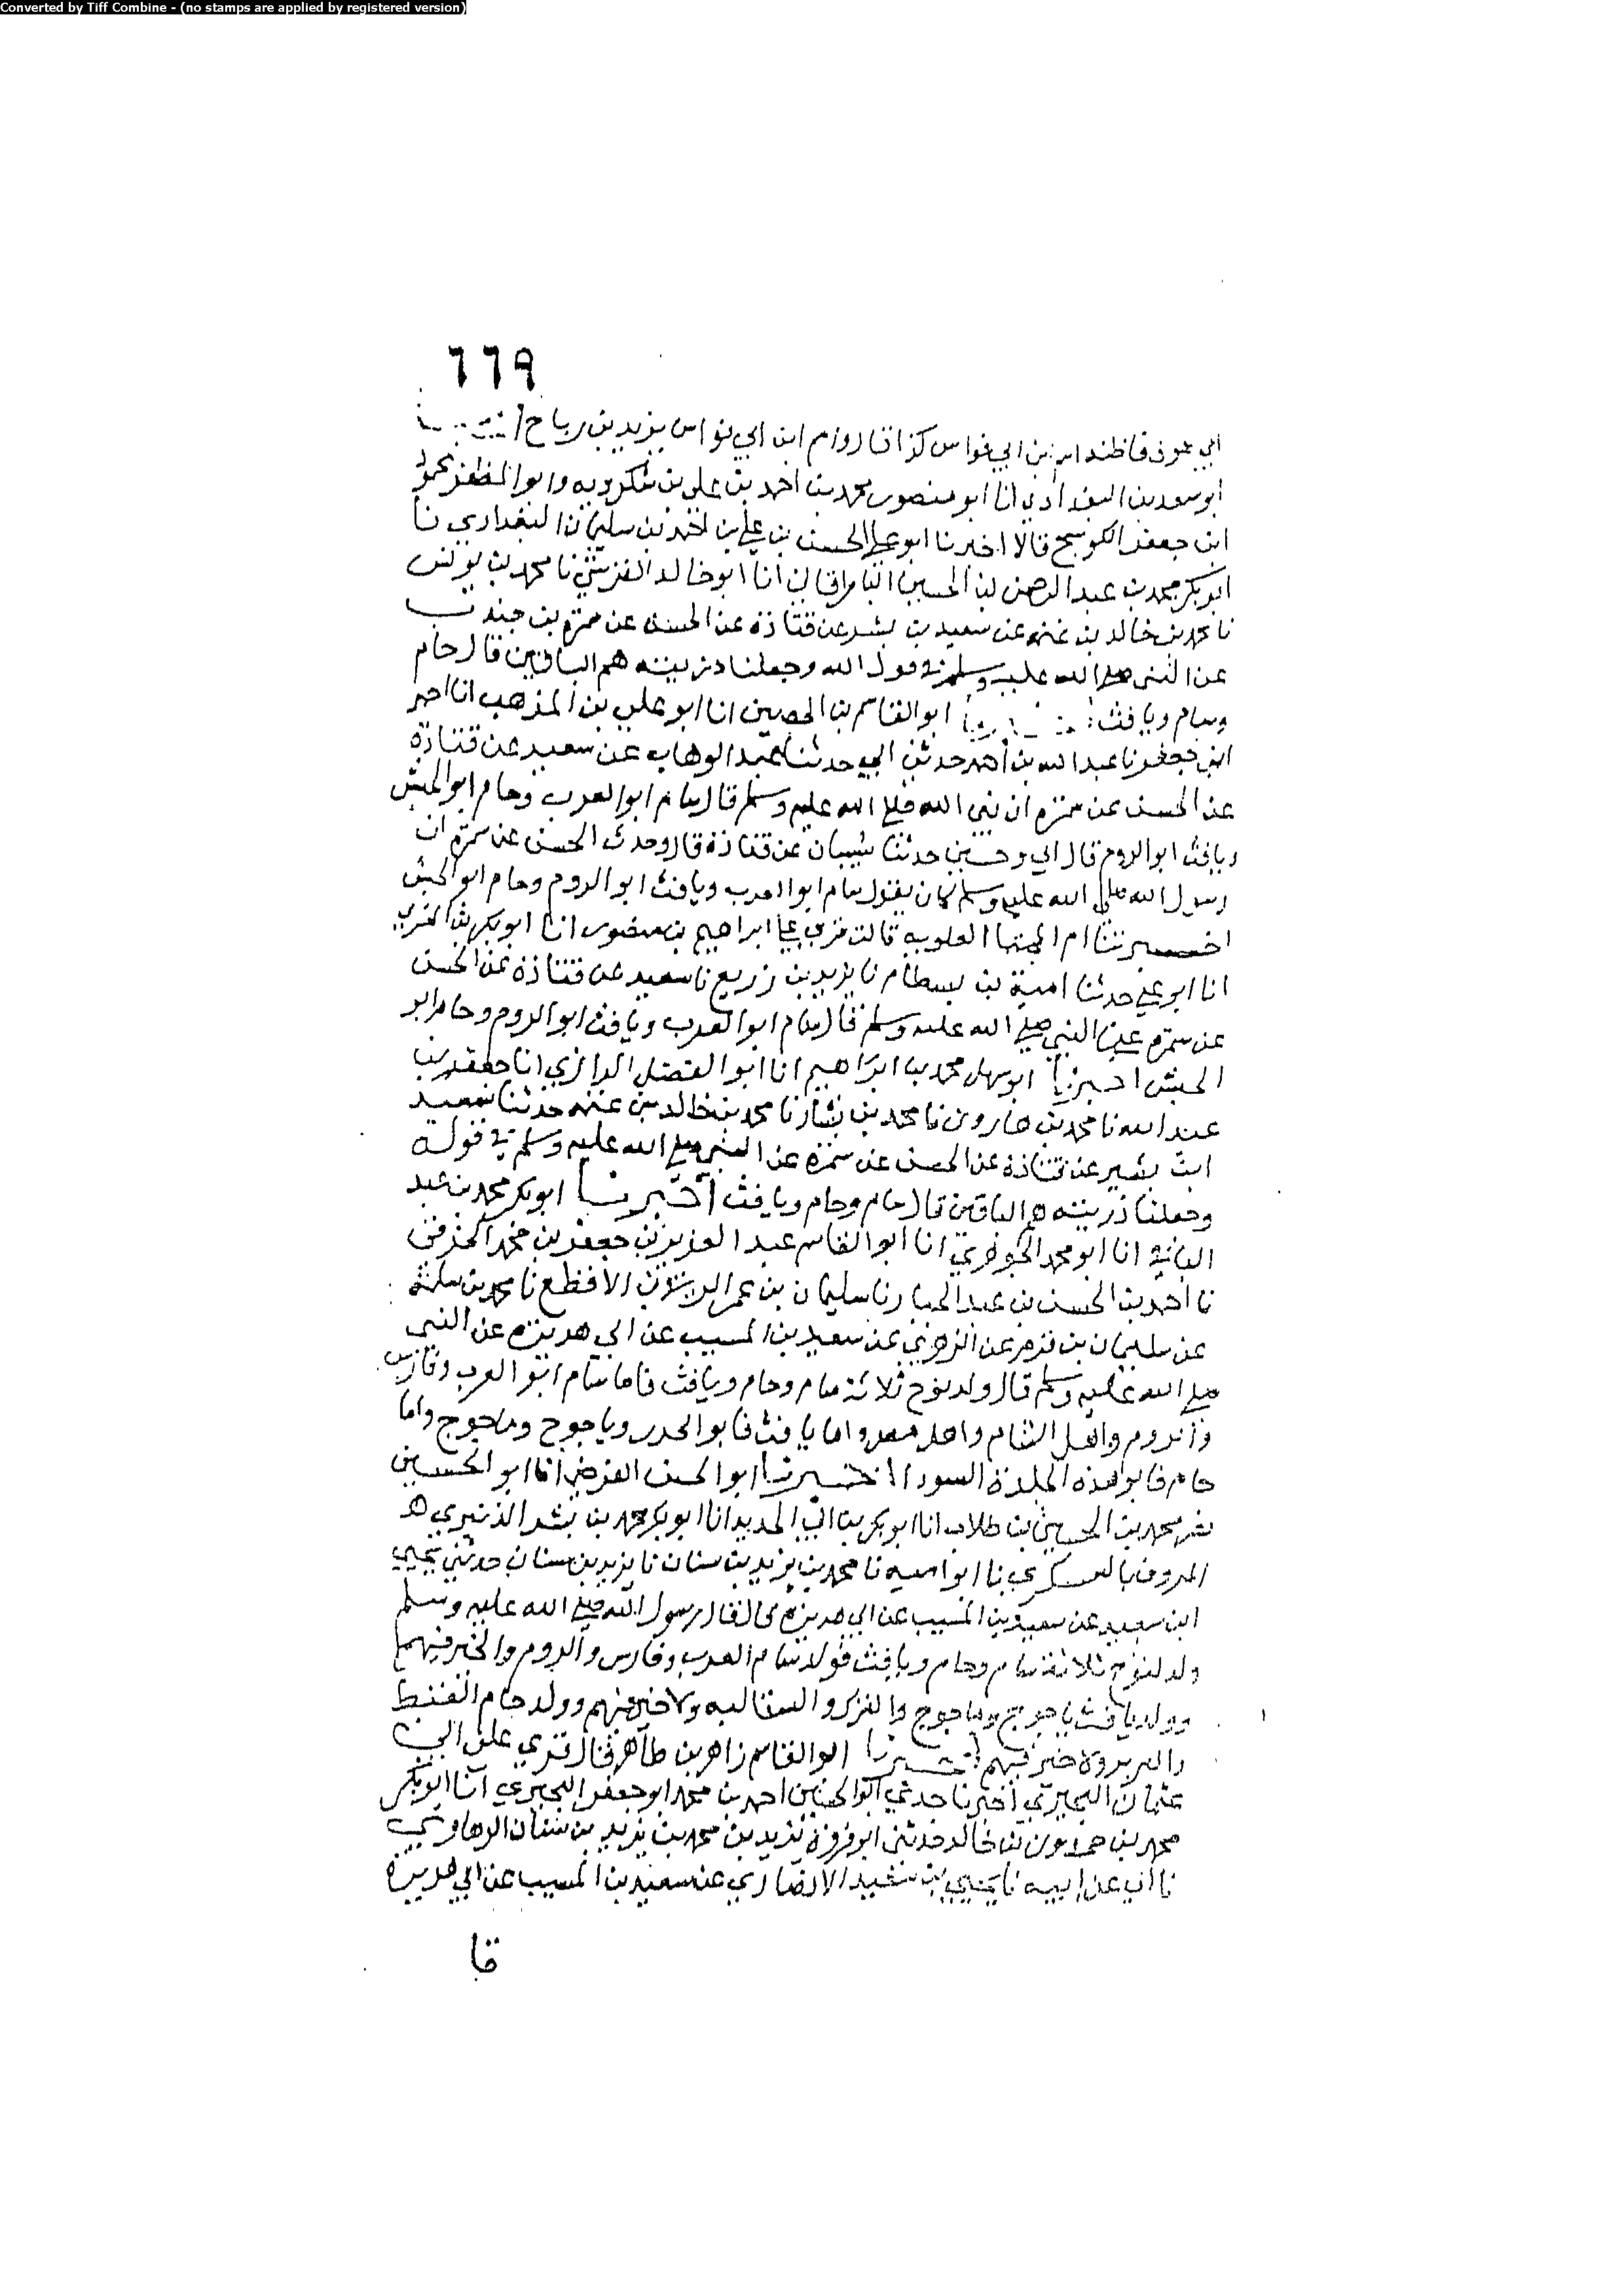 Converted by Tiff Combine - (no stamps are applied by registered version)
٦٦٩
ابي عون فاظنه ابن ابي فواس كذا قا رواه ابن ابي نواس يزيد بن رباح
ابو سعد بن البغدادي انا ابو منصور محمد بن احمد بن علي بن شكرويه وابو المظفر محمود
ابن جعفر الكوسج قالا اخبرنا ابو علي الحسن بن علي بن احمد بن سليمان البغدادي نا
ابو بكر محمد بن عبد الرحمن بن الحسين انا ابو خالد القرشي نا محمد بن يونس
نا محمد بن خالد بن عثمه عن سعيد بن بشر عن قتادة عن الحسن عن سمرة بن جندب
عن النبي صلى الله عليه وسلم في قول الله وجعلنا ذريته هم الباقين قال حام
وسام ويافث ابو القاسم بن الحصين انا ابو علي بن المذهب انا احمد
ابن جعفر نا عبد الله بن احمد حدثني ابي حدثنا عبد الوهاب عن سعيد عن قتادة
عن الحسن عن سمرة ان نبي الله صلى الله عليه وسلم قال سام ابو العرب وحام ابو الحبش
ويافث ابو الروم قال ابي وحسين حدثنا شيبان عن قتادة قال وحدث الحسن عن سمرة ان
رسول الله صلى الله عليه وسلم كان يقول سام ابو العرب ويافث ابو الروم وحام ابو الحبش
اخبرتنا ام المجتبا العلويه قالت قرى على ابراهيم بن منصور انا ابو بكر بن المقري
انا ابو علي حدثنا امية بن بسطام نا يزيد بن زريع نا سعيد عن قتادة عن الحسن
عن سمرة عن النبي صلى الله عليه وسلم قال سام ابو العرب ويافث ابو الروم وحام ابو
الحبش اخبرنا ابو سهل محمد بن ابراهيم انا ابو الفضل الرازي انا جعفر بن
عبد الله نا محمد بن هارون نا محمد بن بشار نا محمد بن خالد بن عثمه حدثنا سعيد
ابن بشير عن قتادة عن الحسن عن سمرة عن النبي صلى الله عليه وسلم في قوله
وجعلنا ذريته هم الباقين قال سام وحام ويافث اخبرنا ابو بكر محمد بن عبد
الباقي انا ابو محمد الجوهري انا ابو القاسم عبد العزيز بن جعفر بن محمد الخرقي
نا احمد بن الحسن بن عبد الجبار نا سليمان بن عمر الاقطع نا محمد بن سلمة
عن سليمان بن قرم عن الزهري عن سعيد بن المسيب عن ابي هريرة عن النبي
صلى الله عليه وسلم قال ولد نوح ثلاثة سام وحام ويافث فاما سام ابو العرب وفارس
والروم واهل الشام واهل مصر واما يافث فابو الخزر وياجوج وماجوج واما
حام فابو هذه الجلدة السودا اخبرنا ابو الحسن الفرضي انا ابو الحسين
محمد بن الحسين بن طلاب انا ابو بكر بن ابي الحديد انا ابو بكر محمد بن بشر الزنبري
المعروف بالعسكري نا ابو اميه نا محمد بن يزيد بن سنان نا يزيد بن سنان حدثني يحيى
ابن سعيد عن سعيد بن المسيب عن ابي هريرة قال قال رسول الله صلى الله عليه وسلم
ولد لنوح ثلاثة سام وحام ويافث فولد سام العرب وفارس والروم والخير فيهم
وولد يافث ياجوج وماجوج والترك والسقالبه ولا خير فيهم وولد حام القبط
والبربر ولا خير فيهم اخبرنا ابو القاسم زاهر بن طاهر قال قرى على ابي
عثمان البحيري اخبرنا جدي ابو الحسين احمد بن محمد ابو جعفر البحيري انا ابو بكر
محمد بن حمدون بن خالد حدثني ابو فروة يزيد بن محمد بن يزيد بن سنان الرهاوي
نا ابي عن ابيه نا يحيى بن سعيد الانصاري عن سعيد بن المسيب عن ابي هريرة
قا